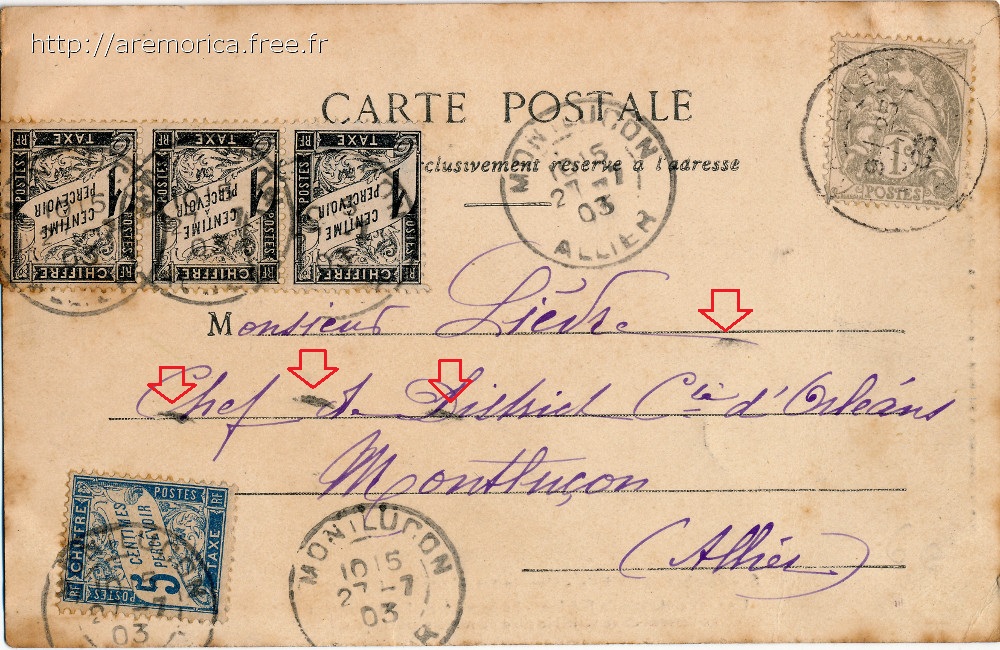 http://aremorica.free.fr
CARTE POSTALE
clusivement réservé à l'adresse
MONTLUCON
10 15
27-7
03
ALLIER
1
POSTES
RF TAXE
POSTES
1
CENTIME
À
PERCEVOIR
CHIFFRE RF
RF TAXE
POSTES
1
CENTIME
À
PERCEVOIR
CHIFFRE RF
RF TAXE
POSTES
1
CENTIME
À
PERCEVOIR
CHIFFRE RF
Monsieur Lièvre
Chef de District Cie d'Orléans
Montluçon
(Allier)
POSTES RF
CHIFFRE
5
CENTIMES
À
PERCEVOIR
RF TAXE
27-7
03
MONTLUCON
10 15
27-7
03